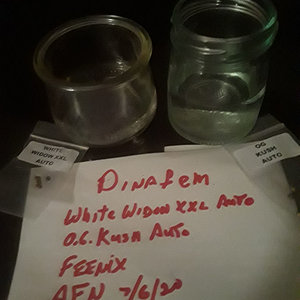 WHITE
WIDOW XXL
AUTO
OG
KUSH
AUTO
Dinafem
White Widow XXL Auto
O.G. Kush Auto
FEENIX
AFN 7/6/20